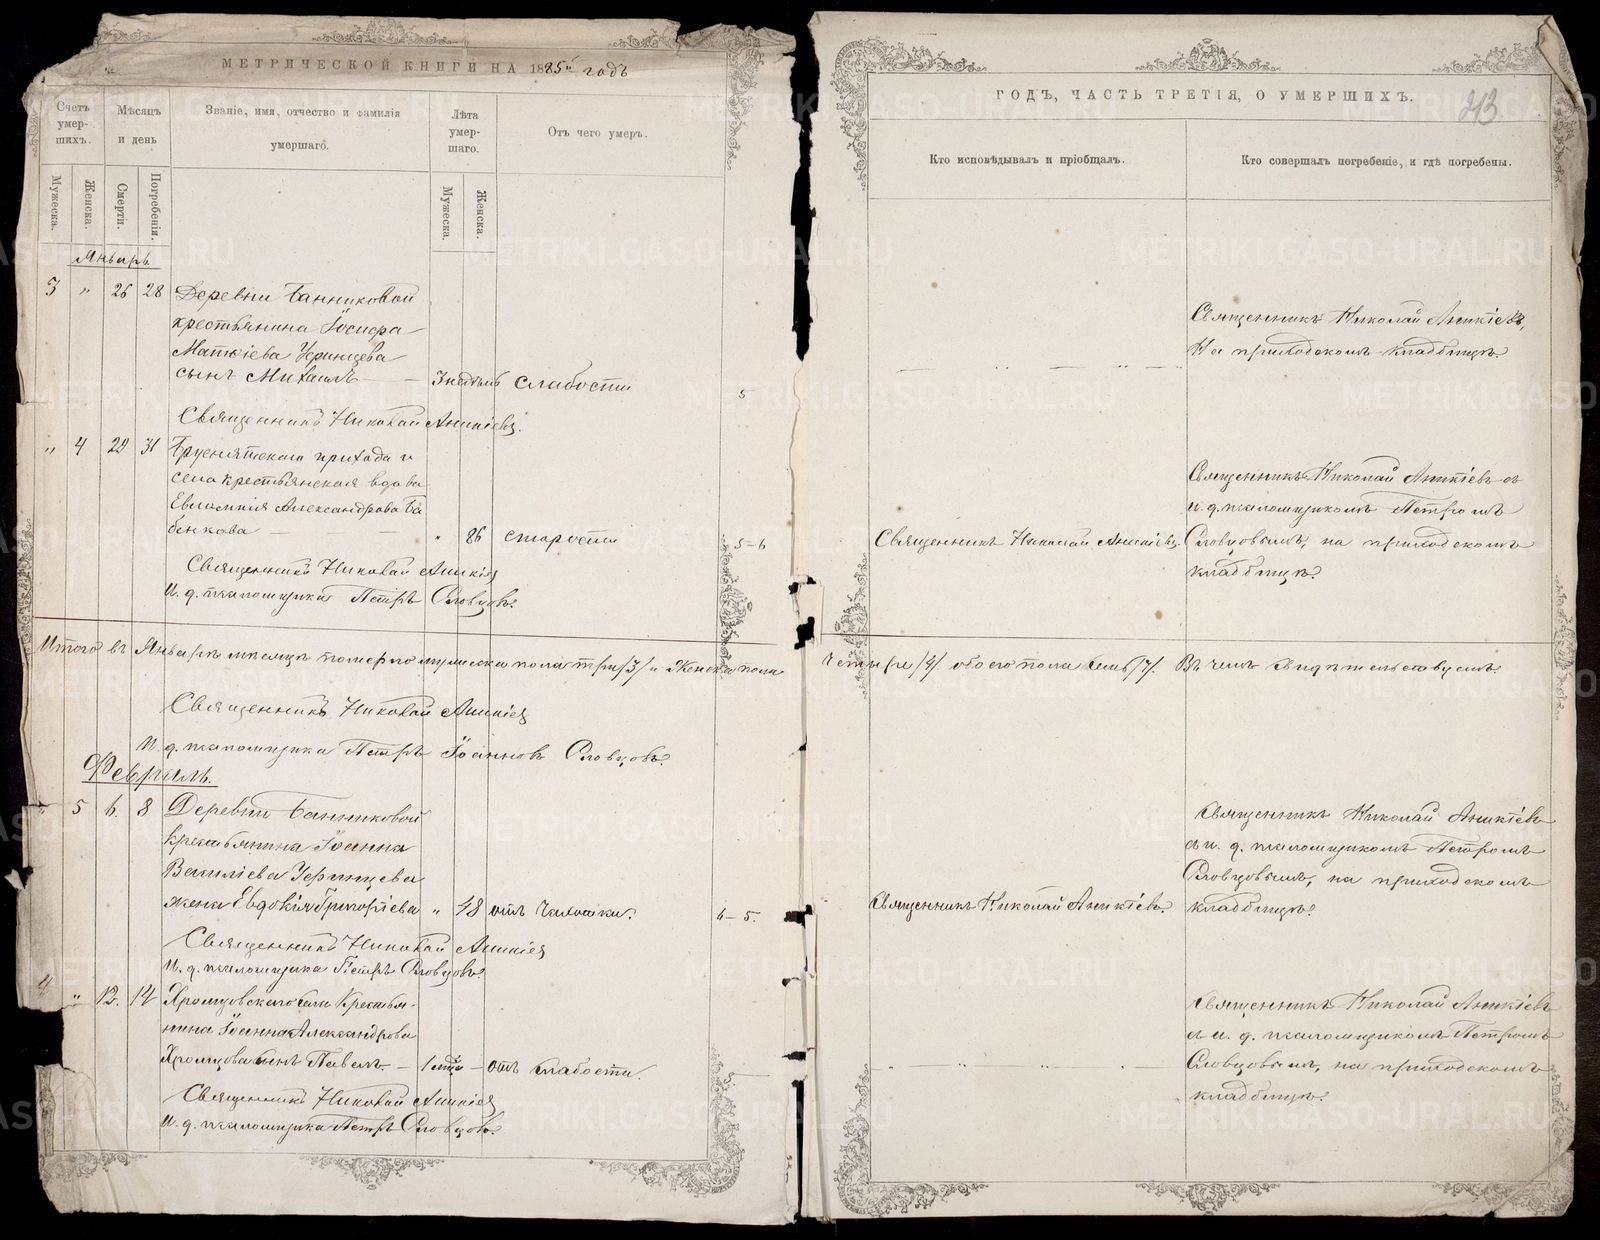 МЕТРИЧЕСКОЙ КНИГИ НА 1885й годъ
Счетъ умер-шихъ.
Мѣсяцъ и день
Званіе, имя, отчество и фамилія умершаго.
Лѣта умер-шаго.
Отъ чего умеръ.
Мужеска.
Женска.
Смерти.
Погребенія.
Мужеска.
Женска.
Январь
3 " 26 28 Деревни Банниковой
крестьянина Іосифа
Матѳіева
сынъ Михаилъ — 3 недѣль слабости
5
Священникъ Николай Аникіевъ.
" 4 29 31 прихода и
села крестьянская вдова
Евѳимія Александрова Ба
бенкова — — " 86 старости
5-6
Священникъ Николай Аникіев
И. д. псаломщика Петръ Словцовъ.
Итого въ Январѣ мѣсяцѣ померло мужеска пола три /3/ и Женска пола
Священникъ Николай Аникіев
И. д. псаломщика Петръ Іоанновъ Словцовъ.
Февраль.
" 5 6. 8 Деревни Банниковой
крестьянина Іоанна
Василіева
жена Евдокія Григорьева " 48 отъ Чахотки.
6-5.
Священникъ Николай Аникіев
И. д. псаломщика Петръ Словцовъ.
4 " 12. 14 Хромцовскаго села Крестья-
нина Іоанна Александрова
Хромцова сынъ Павелъ. — 1 отъ слабости.
5
Священникъ Николай Аникіев
И. д. псаломщика Петръ Словцовъ.
ГОДЪ, ЧАСТЬ ТРЕТІЯ, О УМЕРШИХЪ.
213
Кто исповѣдывалъ и пріобщалъ.
Кто совершалъ погребеніе, и гдѣ погребены.
Священникъ Николай Аникіевъ,
На приходскомъ кладбищѣ.
Священникъ Николай Аникіевъ съ
и. д. псаломщикомъ Петромъ
Священникъ Николай Аникіевъ. Словцовымъ, на приходскомъ
кладбищѣ.
четыре /4/ обоего пола семь /7/. Въ чемъ свидѣтельствуемъ.
Священникъ Николай Аникіевъ
съ и. д. псаломщикомъ Петромъ
Словцовымъ, на приходскомъ
Священникъ Николай Аникіевъ. кладбищѣ.
Священникъ Николай Аникіевъ
съ и. д. псаломщикомъ Петромъ
Словцовымъ, на приходскомъ
кладбищѣ.
METRIKI.GASO-URAL.RU